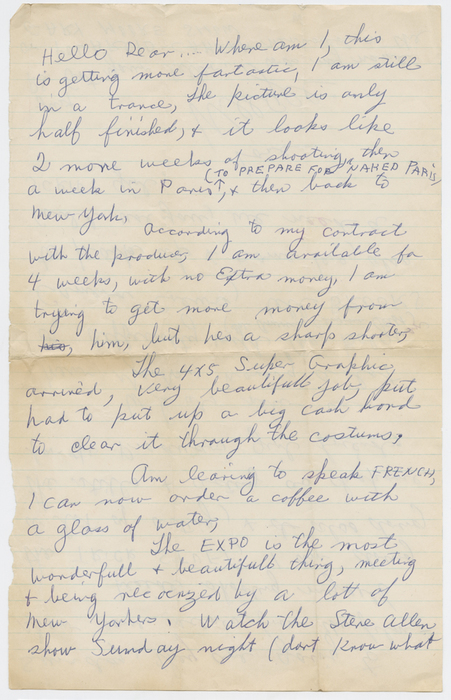 Hello Dear.... Where am I, this
is getting more fartastic, I am still
in a trance, The picture is only
half finished, & it looks like
2 more weeks of shooting, & then
(TO PREPARE FOR "NAKED PARIS,
a week in Paris, & then back to
New York,
According to my contract
with the producer, I am available for
4 weeks, with no Extra money, I am
trying to get more money from
him, but hes a sharp shooter,
The 4X5 Super Graphic
arrived, Very beautifull job, but
had to put up a big cash bond
to clear it through the costums,
Am learing to speak FRENCH,
I can now order a coffee with
a glass of water,
The EXPO is the most
wonderfull & beautifull thing, meeting
& being reconized by a lot of
New Yorkers. Watch the Steve Allen
show Sunday night (dont know what